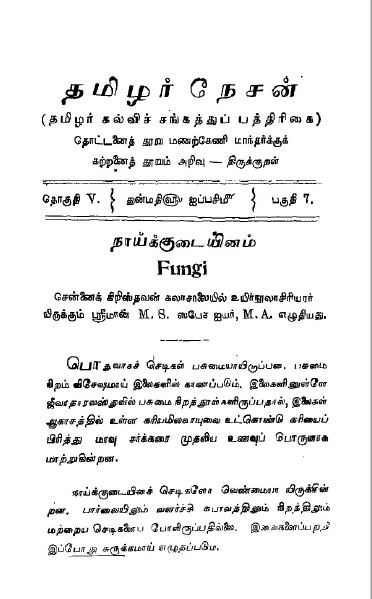 தமிழர் நேசன்
(தமிழர் கல்விச் சங்கத்துப் பத்திரிகை)
தொட்டனைத் தூறு மணற்கேணி மாந்தர்க்குக்
கற்றனைத் தூறும் அறிவு — திருக்குறள்
தொகுதி V. } துன்மதிஹு ஐப்பசிமீ } பகுதி 7.
நாய்க்குடையினம்
Fungi
சென்னைக் கிறிஸ்தவன் கலாசாலையில் உயிர்நூலாசிரியரா
யிருக்கும் ஸ்ரீமான் M. S. ஸபேச ஐயர், M. A. எழுதியது.
பொதுவாகச் செடிகள் பசுமையாயிருப்பன. பசுமை
நிறம் விசேஷமாய் இலைகளில் காணப்படும். இலைகளினுள்ளே
ஜீவாதாரவஸ்துவில் பசுமை நிறத்தூள்களிருப்பதால், இலைகள்
ஆகாசத்தில் உள்ள கரியமிலவாயுவை உட்கொண்டு கரியைப்
பிரித்து மாவு சர்க்கரை முதலிய உணவுப் பொருளாக
மாற்றுகின்றன.
நாய்க்குடையினச் செடிகளோ வெண்மையா யிருக்கின்
றன. பார்வையிலும் வளர்ச்சி சுபாவத்திலும் நிறத்திலும்
மற்றைய செடிகளைப் போலிருப்பதில்லை. இவைகளைப்பற்றி
இப்போது சுருக்கமாய் எழுதப்படும்.